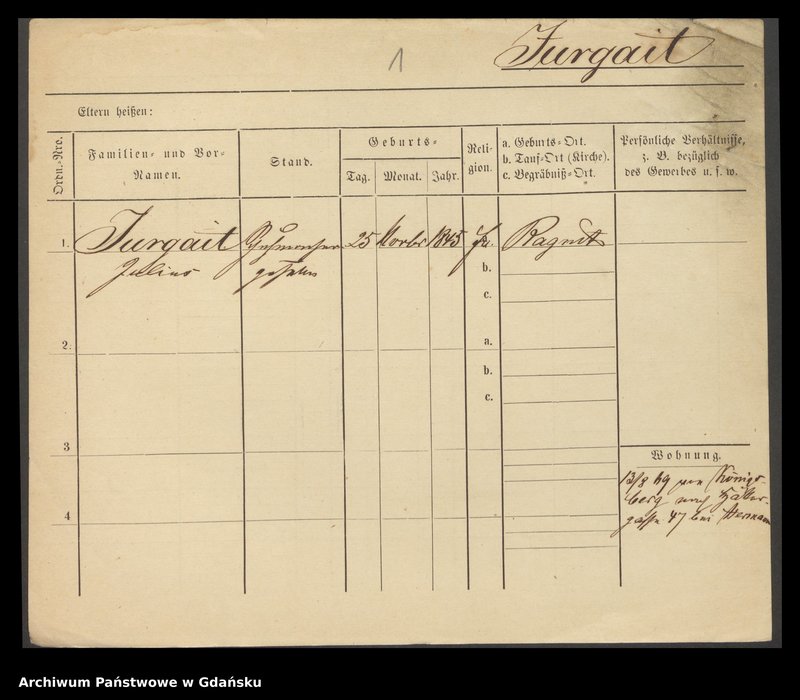 1
Jurgait
Eltern heißen:
Ordn.-Nro.
Familien- und Vor-
Namen.
Stand.
Geburts-
Tag.
Monat.
Jahr.
Reli-
gion.
a. Geburts-Ort.
b. Tauf-Ort (Kirche).
c. Begräbniß-Ort.
Persönliche Verhältnisse,
z. B. bezüglich
des Gewerbes u. s. w.
1.
Jurgait
Julius
Schuhmacher
gesellen
25
Novbr
1845
Ragnit
b.
c.
2.
a.
b.
c.
3
4
Wohnung.
13/8 69 von Königs-
berg nach Häker-
gasse 47 bei Hermann
Archiwum Państwowe w Gdańsku